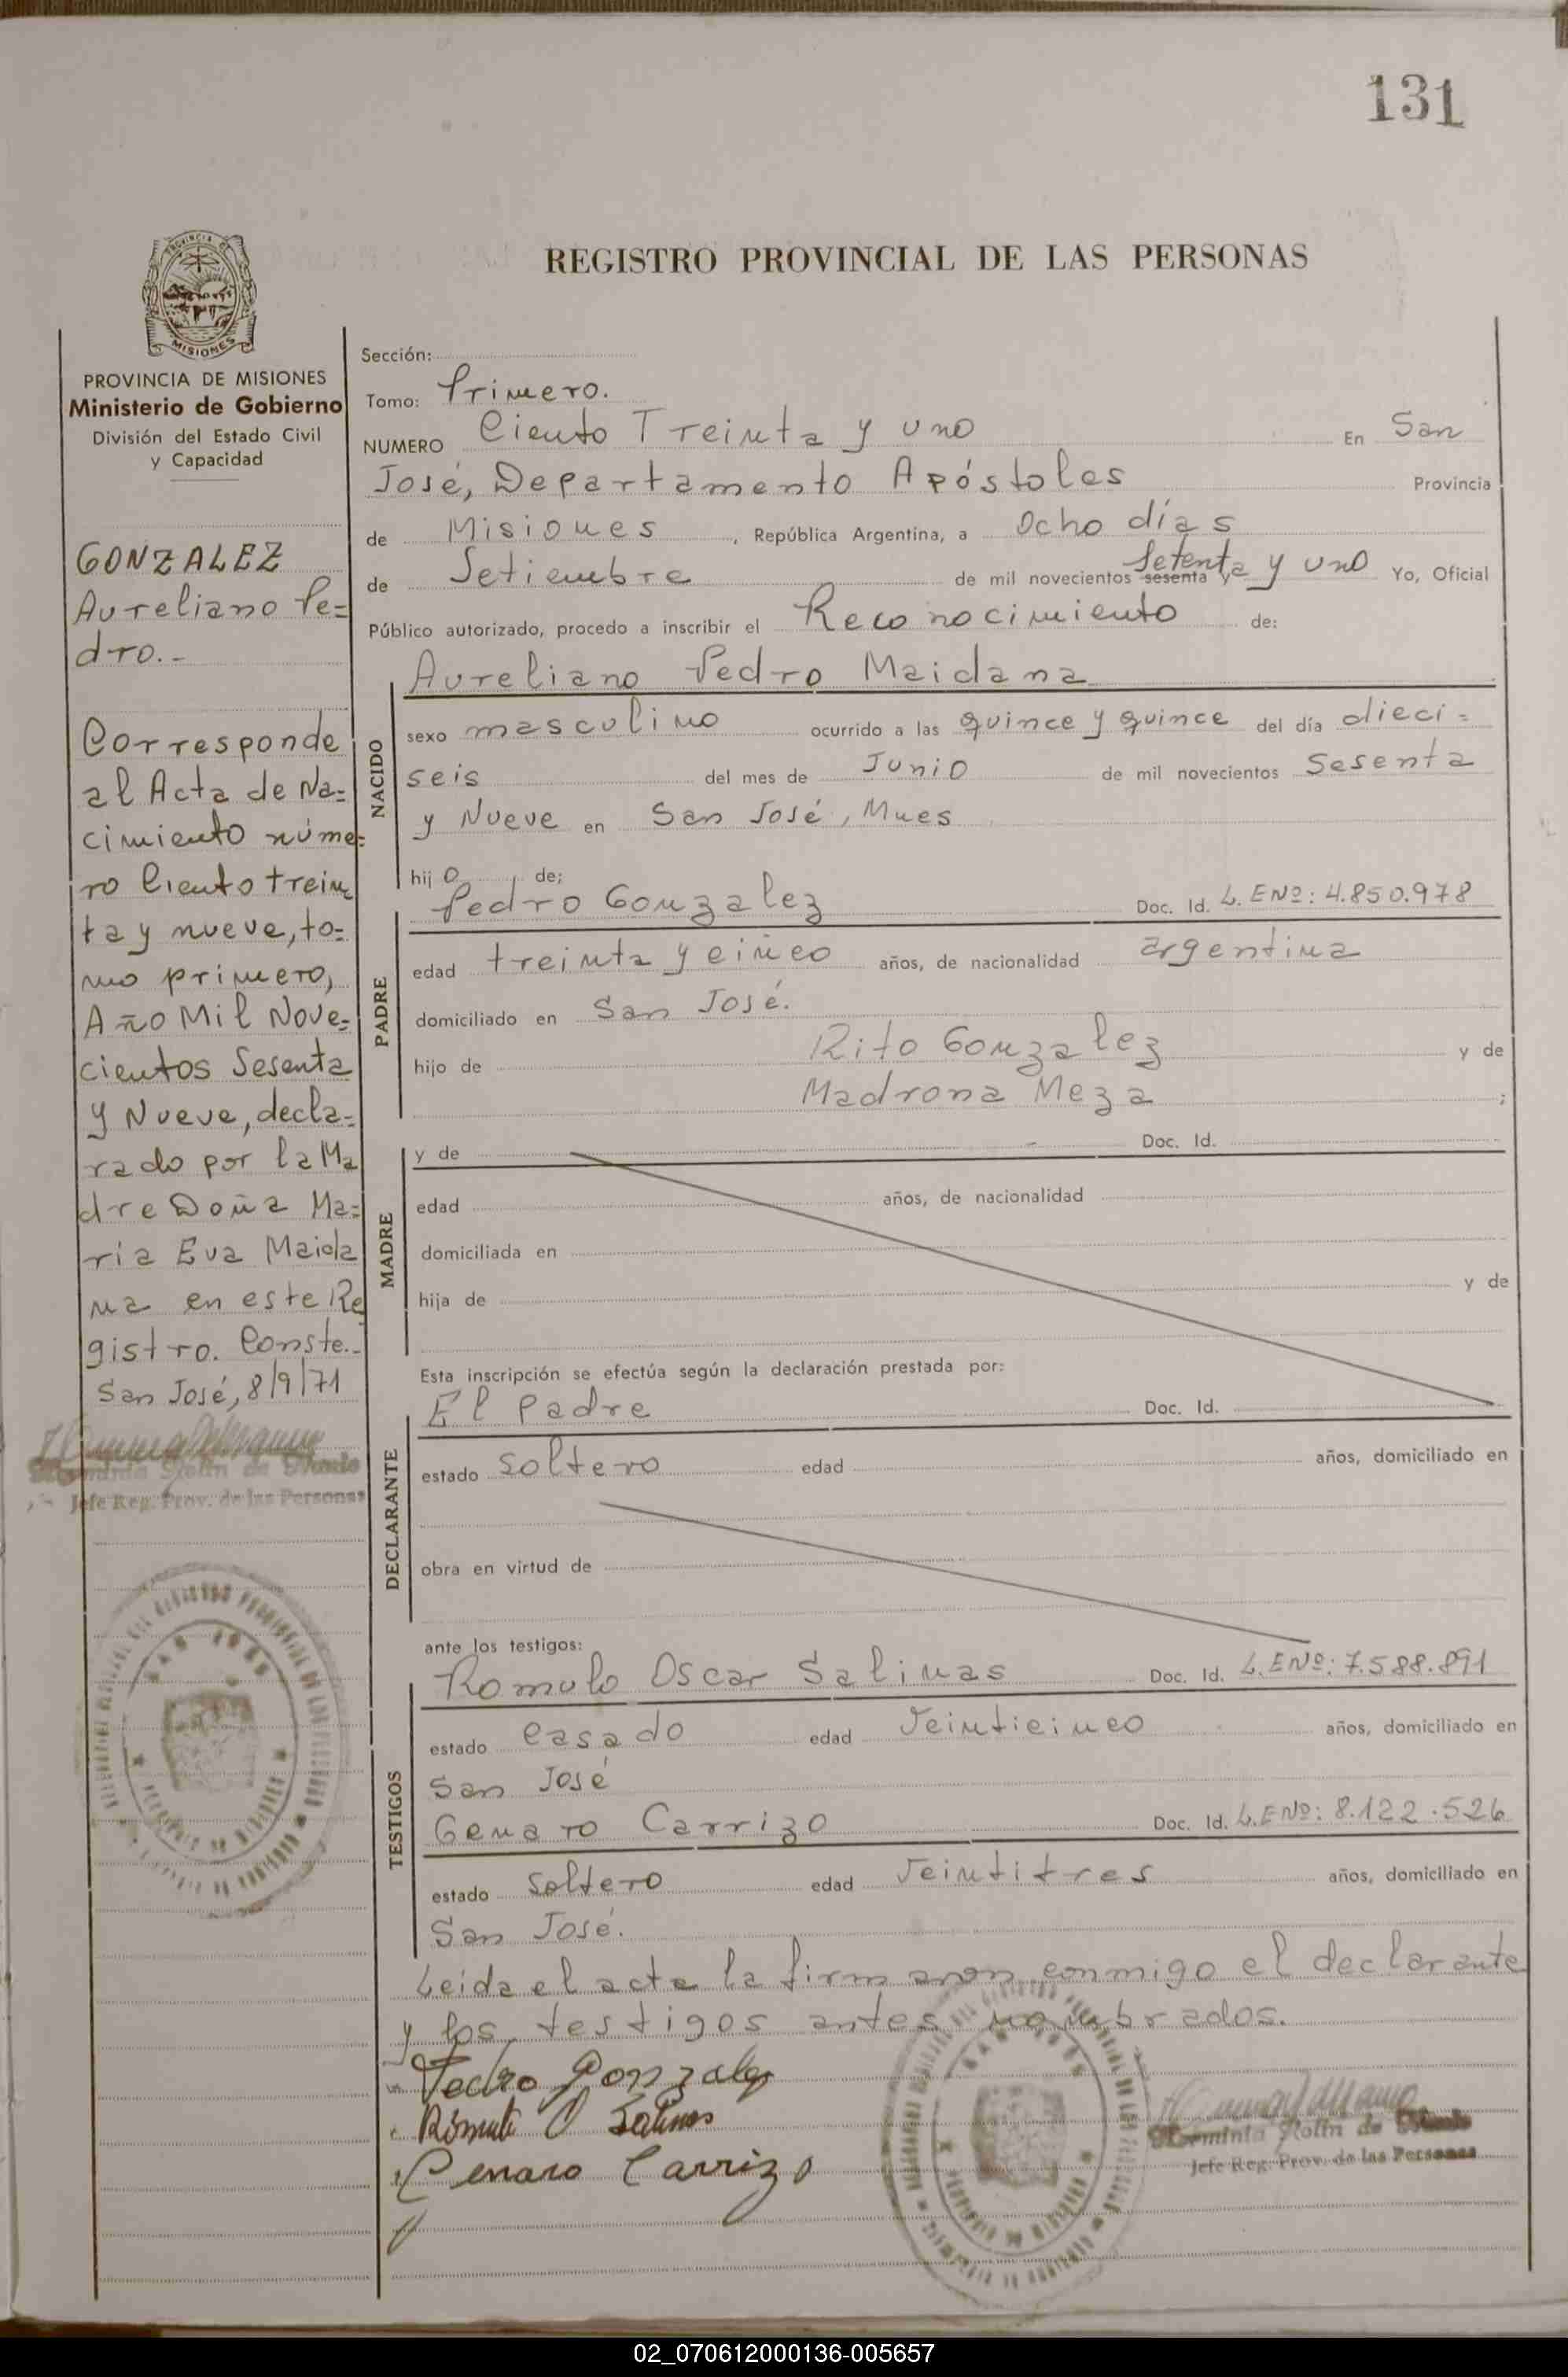 131
REGISTRO PROVINCIAL DE LAS PERSONAS
MISIONES
PROVINCIA DE MISIONES
Ministerio de Gobierno
División del Estado Civil
y Capacidad
GONZALEZ
Aureliano Pe=
dro.-
Corresponde
al Acta de Na=
cimiento núme=
ro Ciento trein
ta y nueve, to=
mo primero,
Año Mil Nove=
cientos Sesenta
y Nueve, decla=
rado por la Ma
dre Doña Ma=
ria Eva Maida
na en este Re
gistro. Conste.-
San José, 8/9/71
Jefe Reg. Prov. de las Personas
Sección:
Tomo: Primero.
NUMERO Ciento Treinta y uno En San
José, Departamento Apóstoles Provincia
de Misiones, República Argentina, a Ocho días
de Setiembre de mil novecientos sesenta y Setenta y uno Yo, Oficial
Público autorizado, procedo a inscribir el Reconocimiento de:
Aureliano Pedro Maidana
NACIDO
sexo masculino ocurrido a las quince y quince del día dieci=
seis del mes de Junio de mil novecientos Sesenta
y Nueve en San José, Mnes
hijo de:
PADRE
Pedro Gonzalez Doc. Id. L.ENº: 4.850.978
edad treinta y cinco años, de nacionalidad argentina
domiciliado en San José.
hijo de Rito Gonzalez y de
Madrona Meza ;
MADRE
y de Doc. Id.
edad años, de nacionalidad
domiciliada en
hija de y de
Esta inscripción se efectúa según la declaración prestada por:
DECLARANTE
El Padre Doc. Id.
estado soltero edad años, domiciliado en
obra en virtud de
ante los testigos:
TESTIGOS
Romulo Oscar Salinas Doc. Id. L.ENº: 7.588.891
estado casado edad Veinticinco años, domiciliado en
San José
Genaro Carrizo Doc. Id. L.ENº: 8.122.526
estado soltero edad Veintitres años, domiciliado en
San José.
Leida el acta la firmaron conmigo el declarante
y los testigos antes nombrados.
Pedro Gonzalez
Rómulo O Salinas
Genaro Carrizo
Herminia Stolin de
Jefe Reg. Prov. de las Personas
02_070612000136-005657